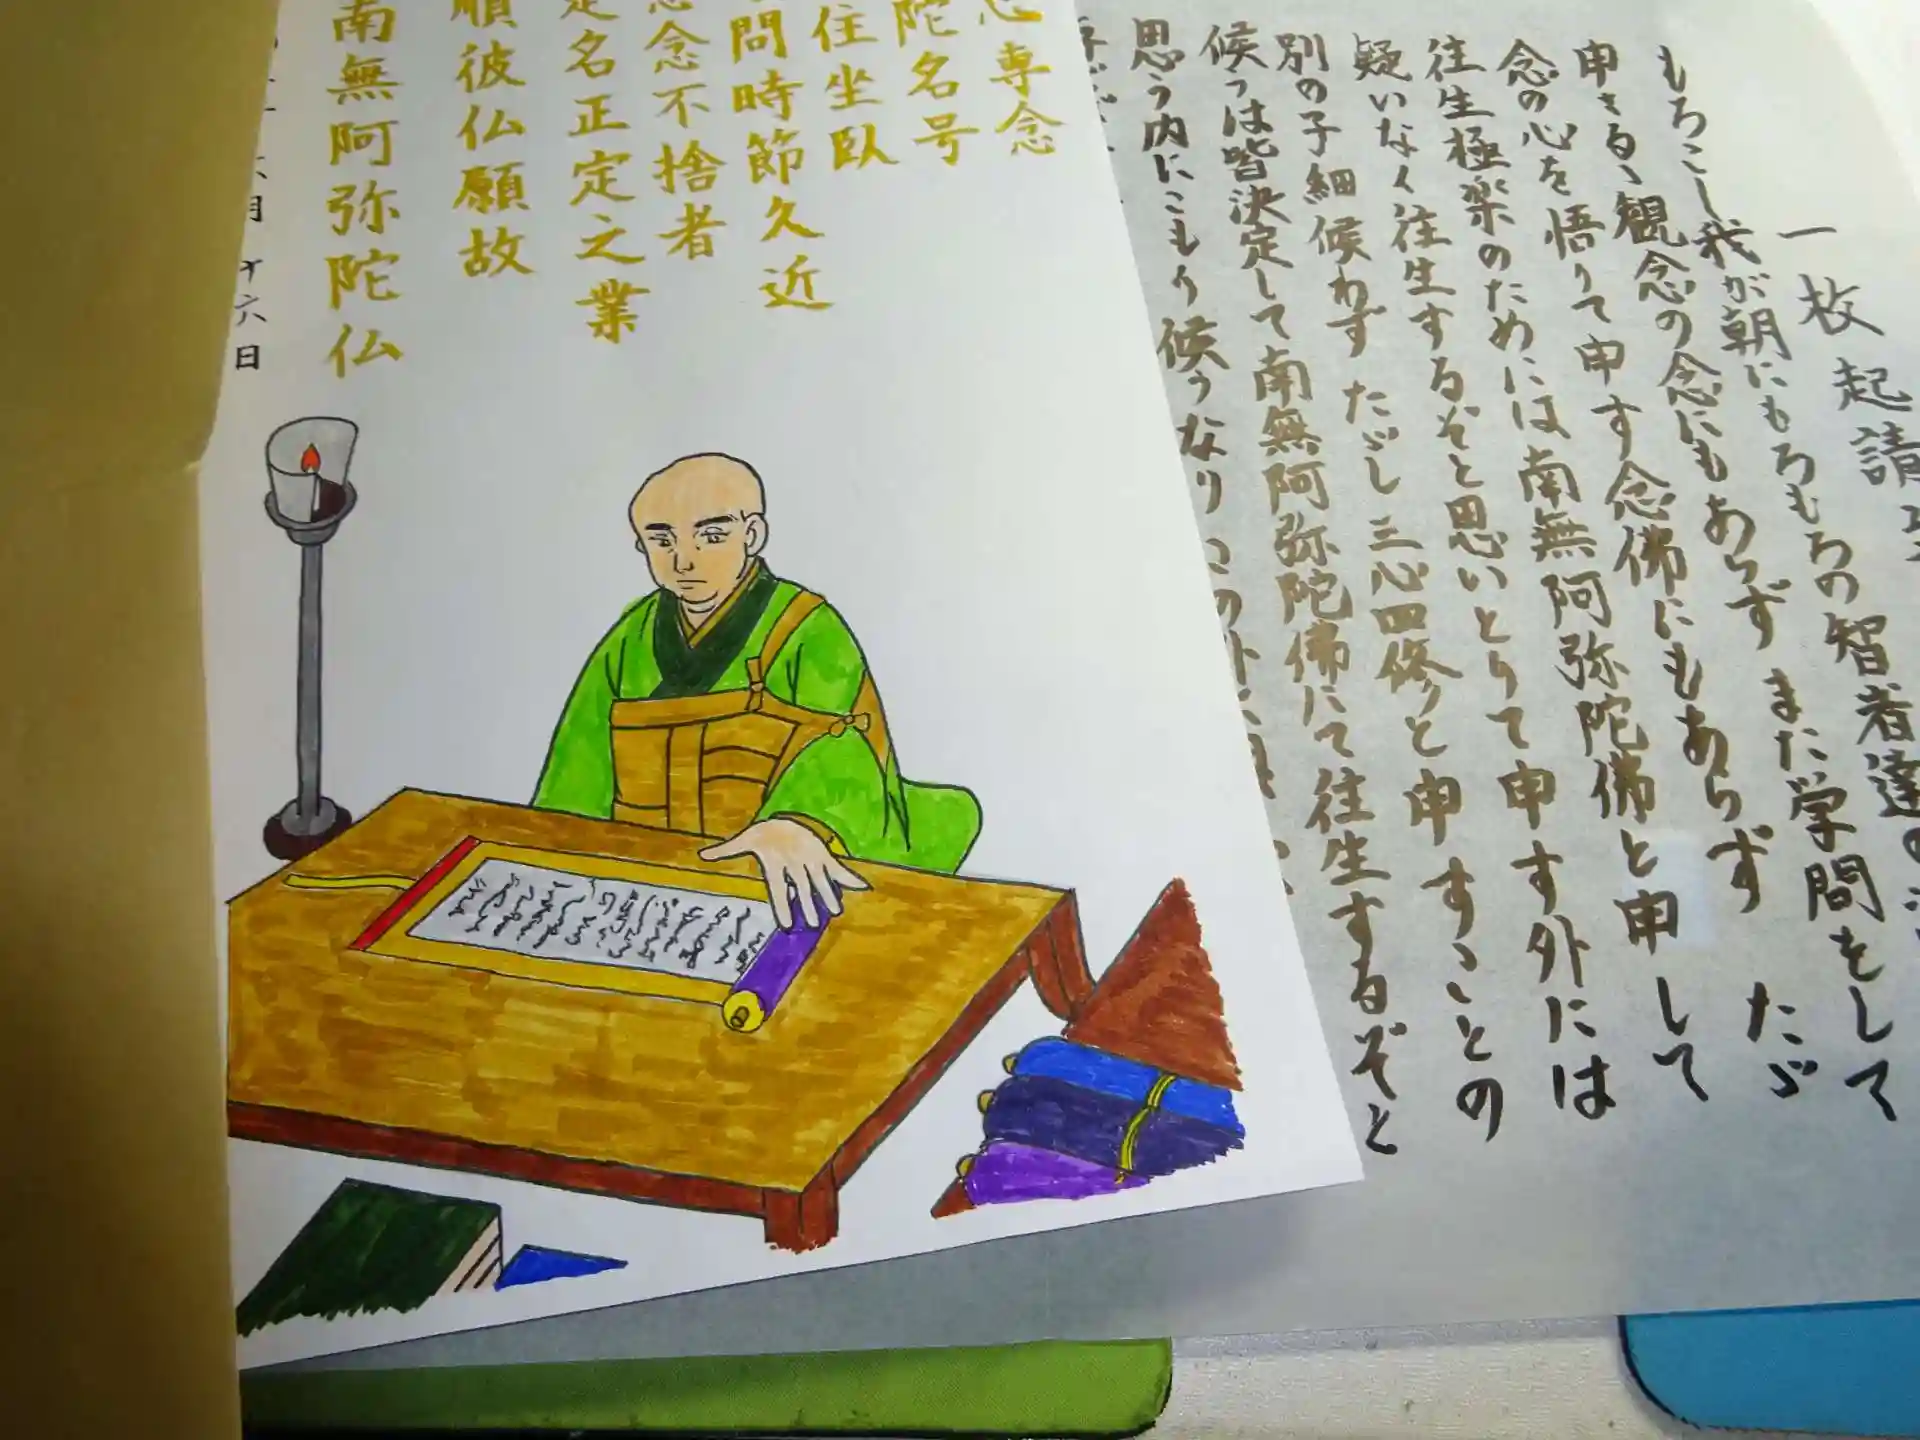 一枚起請文
もろこし我が朝にもろもろの智者達の
申さるゝ観念の念にもあらずまた学問をして
念の心を悟りて申す念佛にもあらずたゞ
往生極楽のためには南無阿弥陀佛と申して
疑いなく往生するぞと思いとりて申す外には
別の子細候わずたゞし三心四修と申すことの
候うは皆決定して南無阿弥陀佛にて往生するぞと
思う内にこもり候うなり
専念
陀名号
住坐臥
問時節久近
念不捨者
名正定之業
順彼仏願故
南無阿弥陀仏
六日